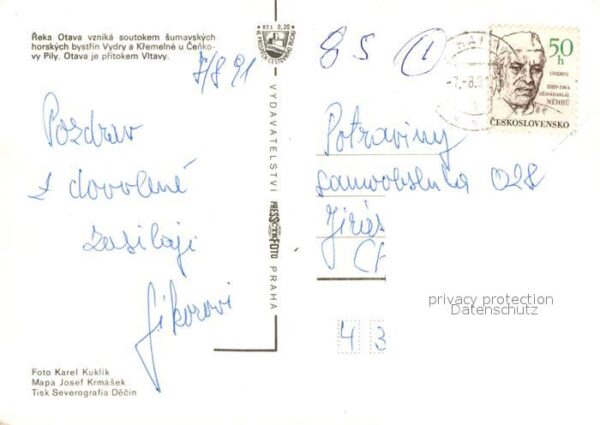 Řeka Otava vzniká soutokem šumavských
horských bystřin Vydry a Křemelné u Čeňko-
vy Pily. Otava je přítokem Vltavy.
7/8 91
Pozdrav
z dovolené
zasílají
VYDAVATELSTVÍ PRESSFOTO PRAHA
Kčs 0,20
85 1
50
h
UNESCO
1889-1964
DŽAVÁHARLÁL
NÉHRÚ
ČESKOSLOVENSKO
Potraviny
samoobsluha 028
Jirás
43
privacy protection
Datenschutz
Foto Karel Kuklík
Mapa Josef Krmášek
Tisk Severografia Děčín